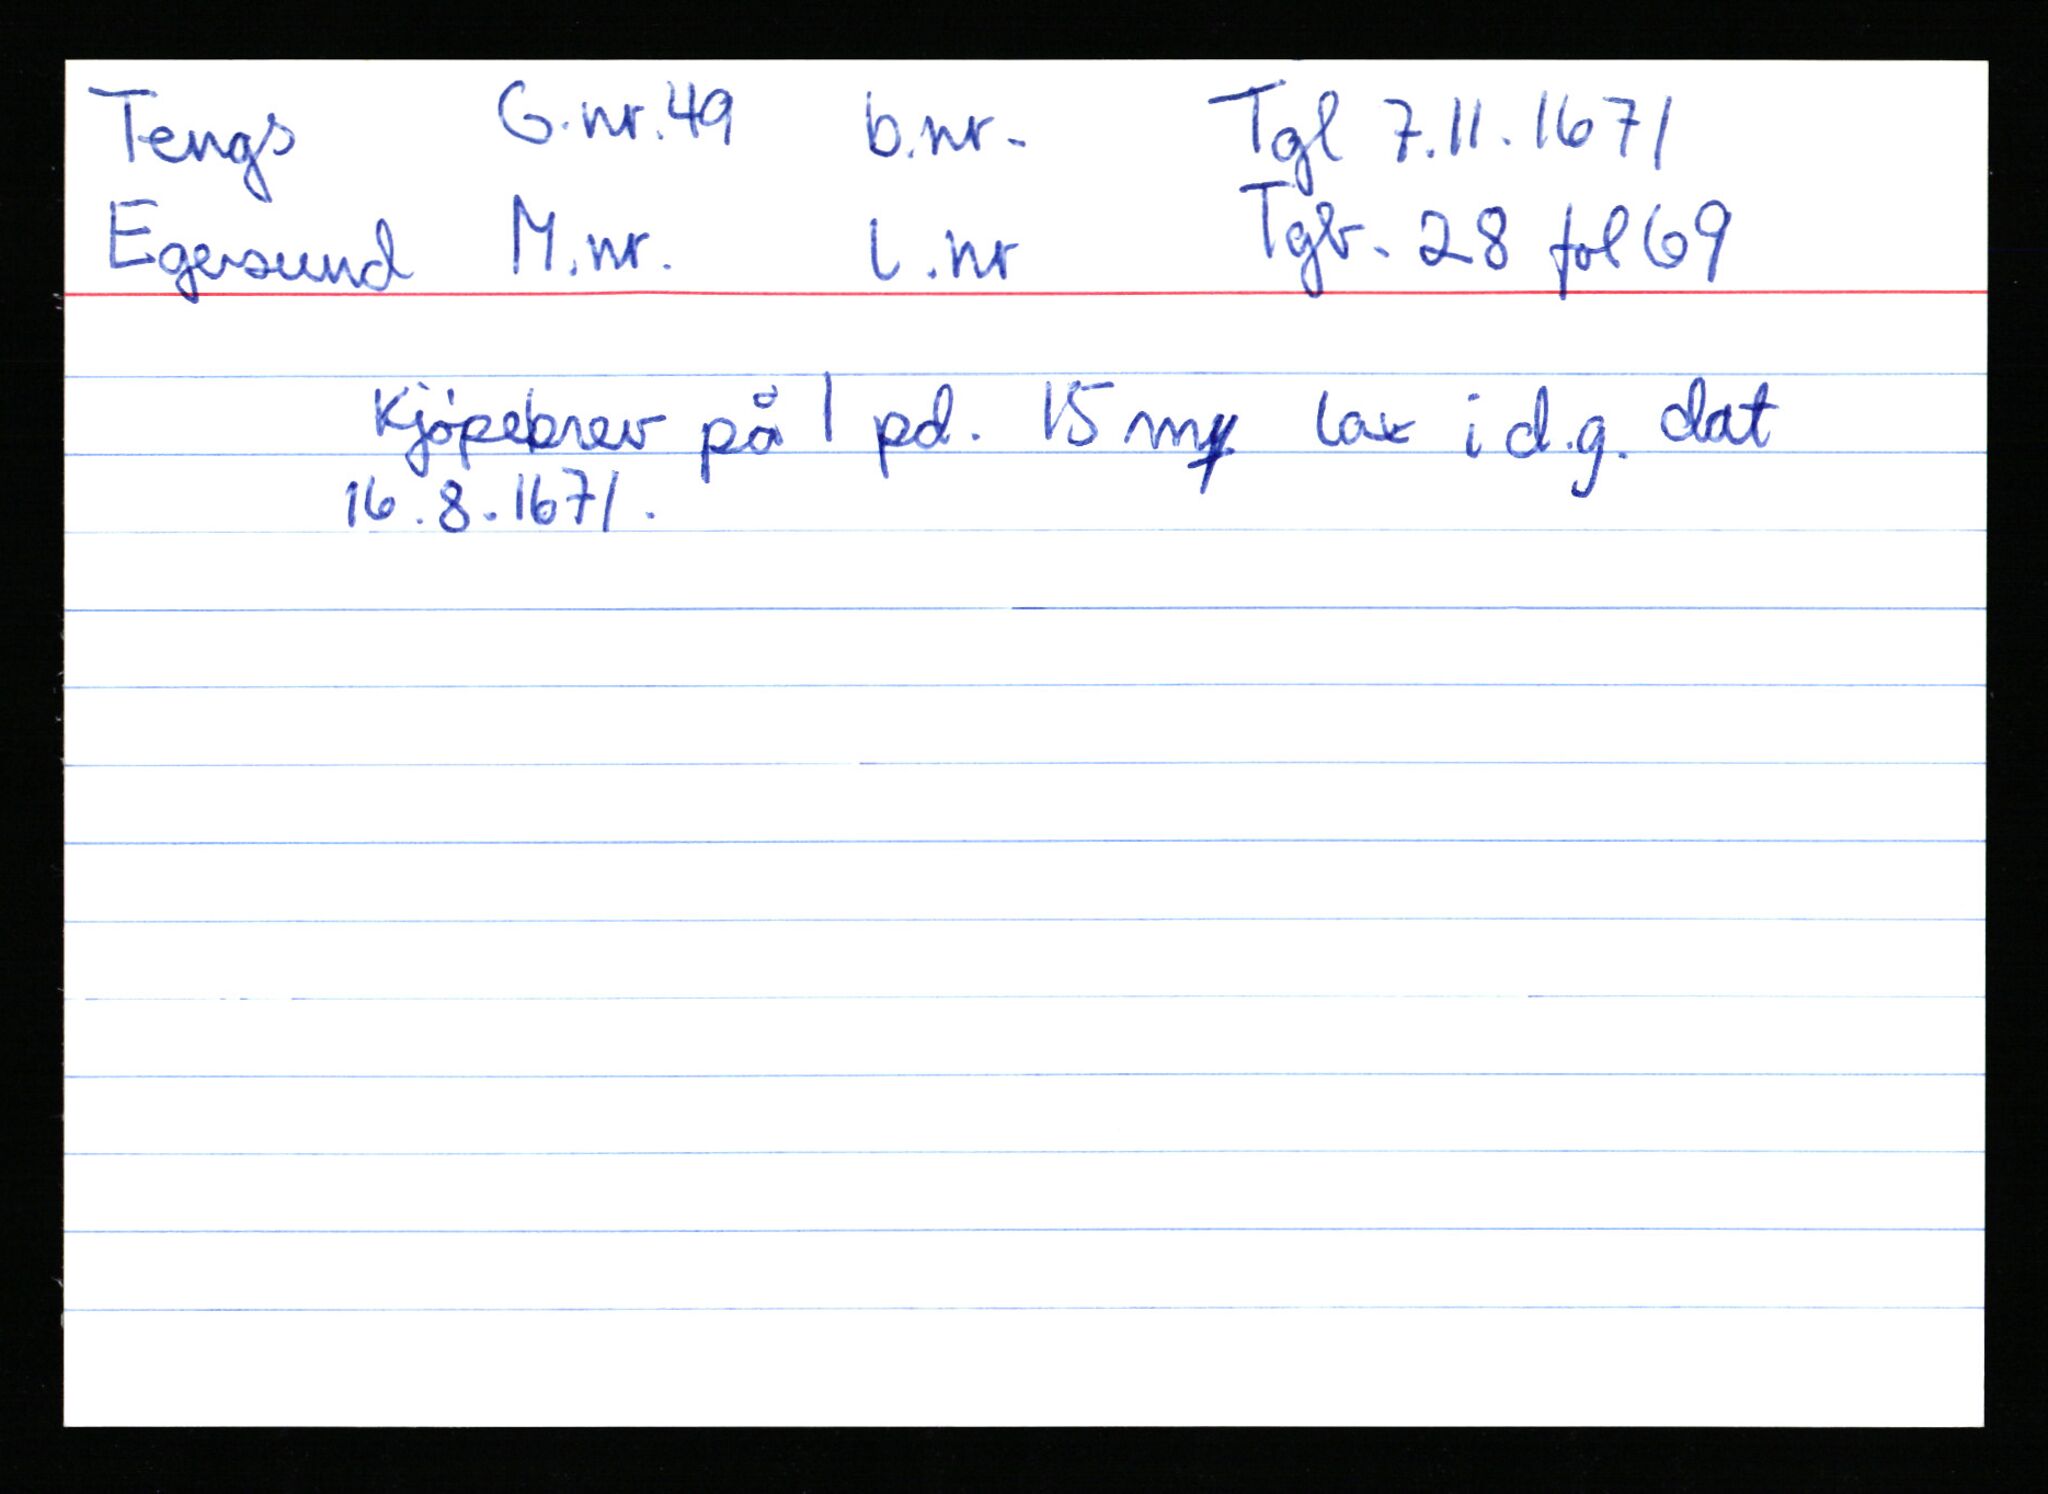 Tengs G.nr. 49 b.nr. Tgl 7.11.1671
Egersund M.nr. l.nr Tgb. 28 fol 69
Kjøpebrev på 1 pd. 15 mk lax i d.g. dat
16.8.1671.